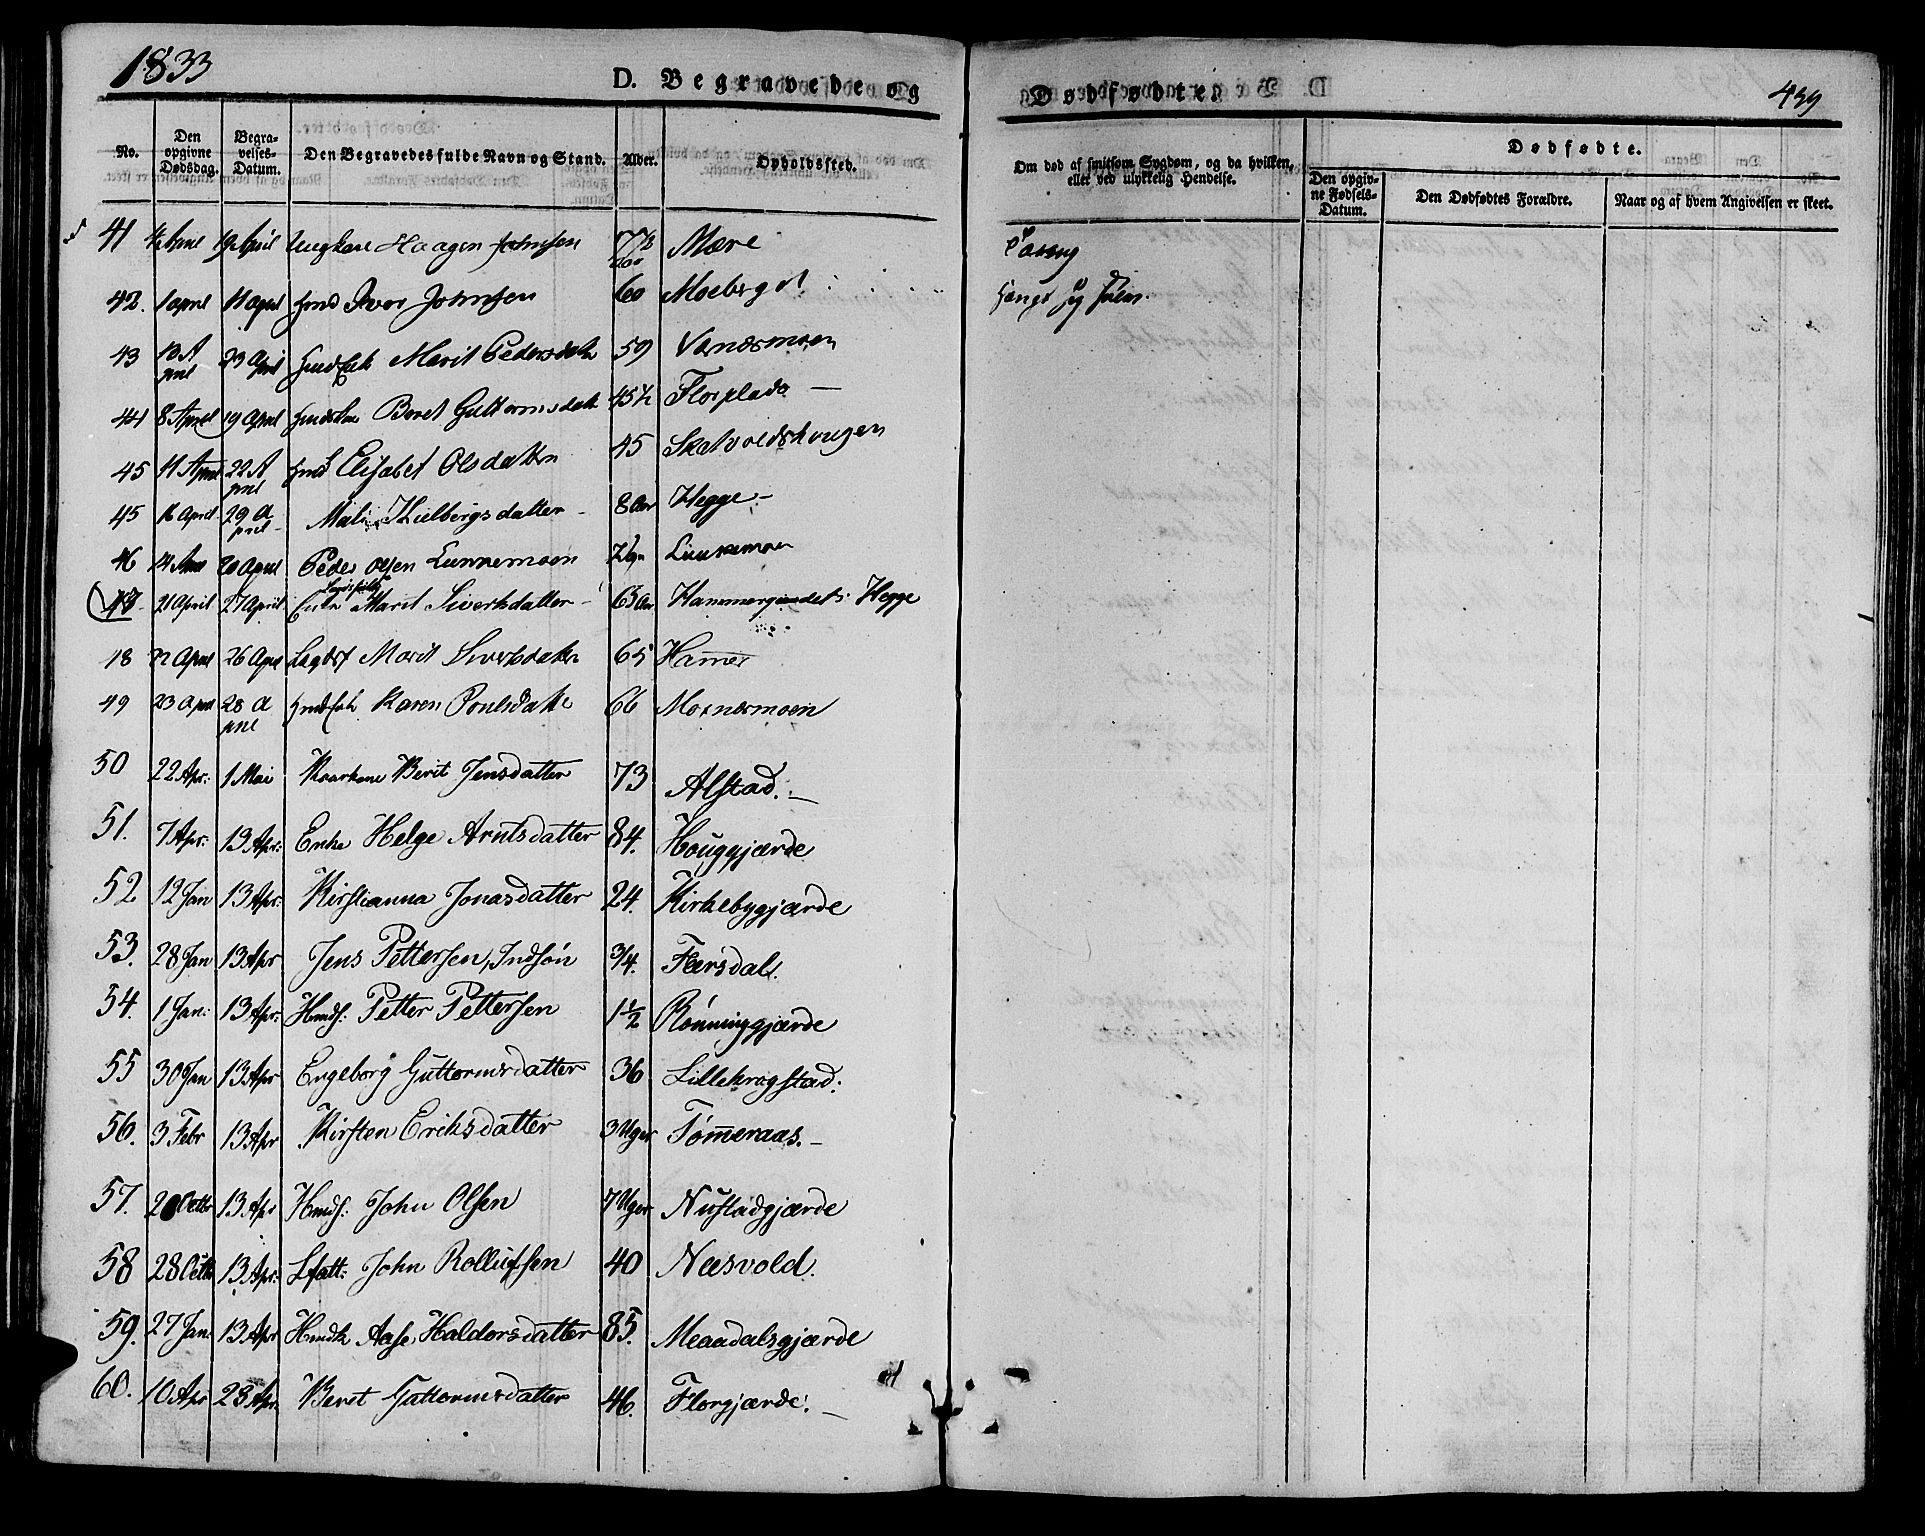 1833
D. Begravede og Dødfødte.
499
No. | Den opgivne Dødsdag. | Begravelses-Datum. | Den Begravedes fulde Navn og Stand. | Alder. | Opholdssted. | Om død af smitsom Sygdom, og da hvilken, eller ved ulykkelig Hendelse. | Dødfødte. | Den opgivne Fødsels-Datum. | Den Dødfødtes Forældre. | Naar og af hvem Angivelsen er skeet.
41 | April | 19 April | Ungkarl Haagen Johnsen | Mære
42. | 1 April | 11 April | Hmd Iver Johnsen | 60 | Moeberg | Hængt sig selv.
43 | 13 April | 23 April | Marit Pedersdatter | 59 | Værnesmoen
44 | 8 April | 19 April | Beret Guttormsdatter | 45½ | Florplads
45 | 11 April | 22 April | Elisabet Olsdatter | 45 | Skatvoldshougen
45 | 16 April | 29 April | Mali Kielbergsdatter | 8 Aar | Hegge
46 | 14 April | 20 April | Peder Olsen Lunnemoen | Lunnemoen
47 | 21 April | 27 April | Enke Marit Sivertsdatter | 65 Aar | Hammer Hegge
18 | 22 April | 26 April | Marit Sivertsdatter | 65 | Hammer
49 | 23 April | 28 April | Karen Poulsdatter | 66 | Moxnesmoen
50 | 22 Apr: | 1 Mai | Kaarkone Berit Jensdatter | 73 | Alstad.
51. | 7 Apr: | 13 Apr: | Enke Helge Arntsdatter | 84. | Houggjærde
52 | 12 Jan | 13 Apr: | Kirstianna Jonasdatter | 24. | Kirkebygjærde
53. | 28 Jan | 13 Apr | Jens Pettersen, Indsøn | 3/4. | Flersdal.
54. | 1 Jan: | 13 Apr: | Hmds: Petter Pettersen | 1½ | Rønninggjærde
55 | 30 Jan | 13 Apr | Engeborg Guttormsdatter | 36 | Lillekragstad:
56. | 3 Febr | 13 Apr | Kirsten Eriksdatter | 3 Uger | Tømeraas.
57. | 13 Apr | Hmds: John Olsen | 7 Uger | Nustadgjærde
58 | 28 Octb | 13 Apr: | Lfatt: John Rollufsen | 40 | Næsvold.
59. | 27 Jan | 13 Apr | Hmdk Aase Haldorsdatter | 85. | Meaadalsgjærde
60. | 10 Apr | 28 Apr. | Beret Guttormsdatter | 46. | Florgjærde.